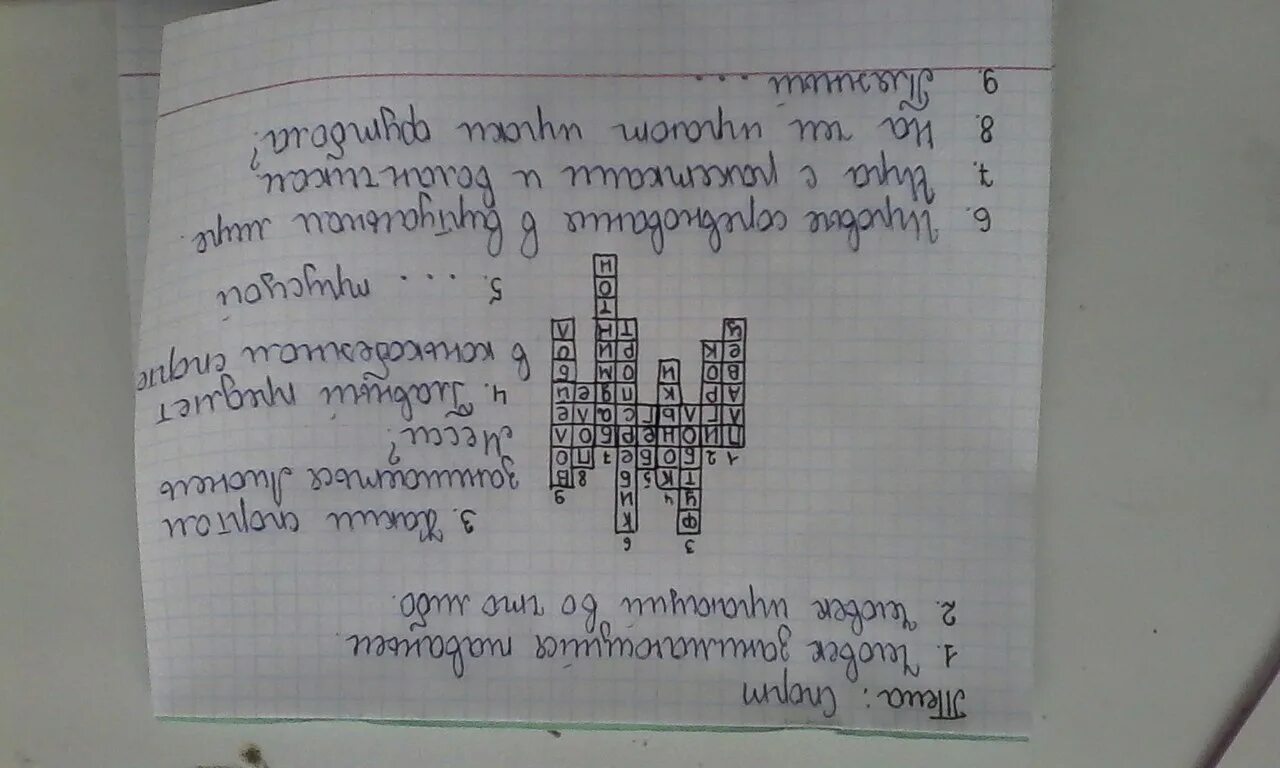 Тема: Спорт
1. Человек занимающийся плаваньем.
2. Человек играющий во что либо.
3 6
Ф К
У 4 И 9
Т К 5 Б 8 В
1 2 Б О Б е 7 П О
П И О Н е Р Б О Л
Л Г Л Ь Г С А Л е
А Р К П Д е Й
В О И О М Б
е К Р И О
Ц Т Н Л
Т
О
Н
3. Каким спортом
занимаеться Лионель
Месси?
4. Главный предмет
в конькобежном спорте
5. ... трусцой
6. Игровые соревнование в виртуальном мире.
7. Игра с ракетками и воланчиком.
8. На чем играют игроки футбола?
9. Пляжный ...